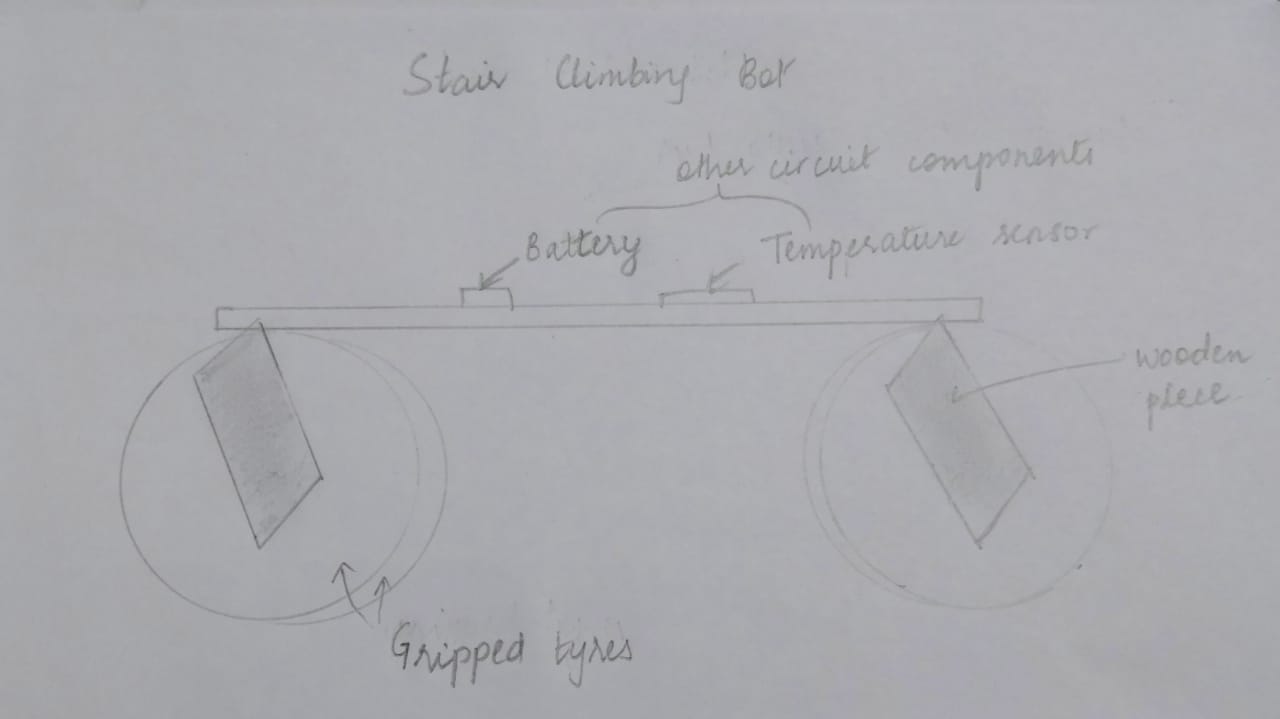 Stair Climbing Bot
other circuit components
Battery
Temperature sensor
wooden
piece
Gripped tyres